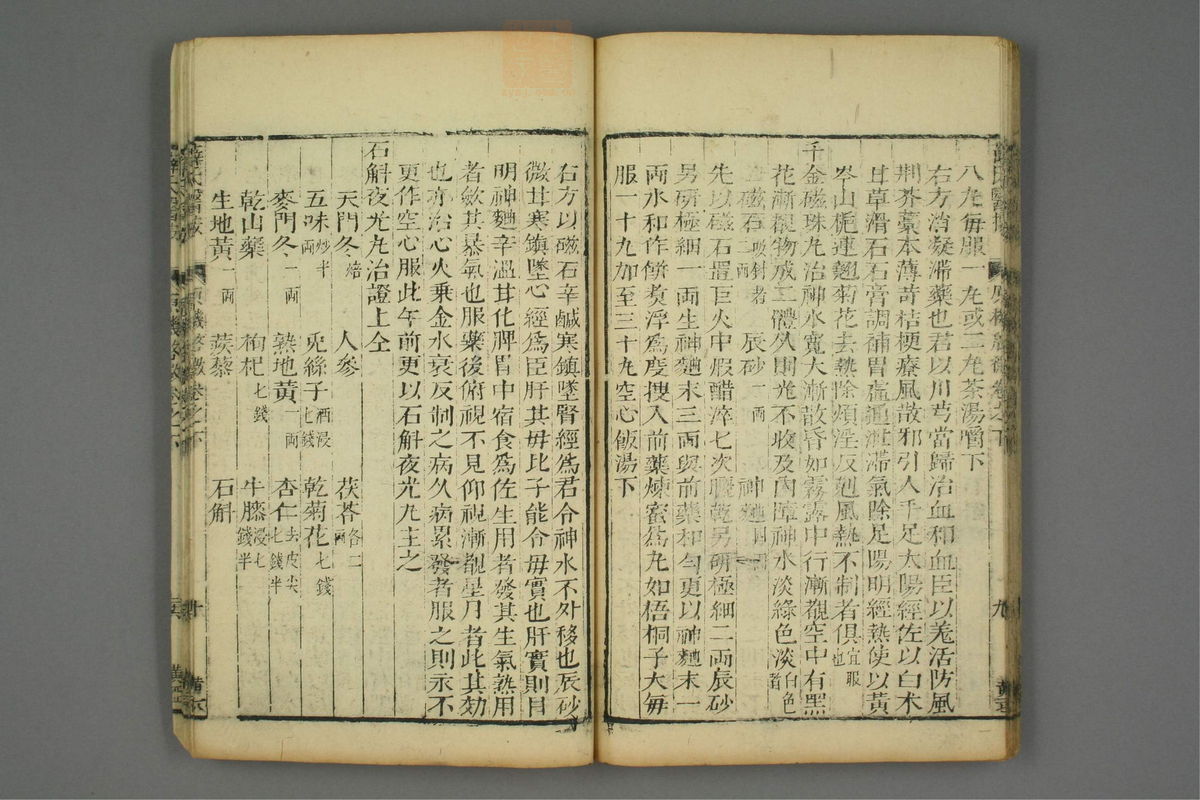 八丸每服一丸或二丸茶湯嚼下
右方消凝滯藥也君以川芎當歸治血和血臣以羗活防風
荆芥藁本薄苛桔梗療風散邪引人手足太陽經佐以白木
甘草滑石石膏調補胃虛通泄滯氣除足陽明經熱使以黃
岑山梔連翹菊花去熱除煩淫反剋風熱不制者俱宜服也
千金磁珠丸治神水寬大漸散昏如霧露中行漸覩空中有黑
花漸覩物成二體久則光不收及內障神水淡綠色淡白色
磁石吸針者二兩 辰砂一兩 神麯四兩
先以磁石置巨火中煆醋淬七次曬乾另研極細二兩辰砂
另研極細一兩生神麯末三兩與前藥和勻更以神麯末一
兩水和作餅煑浮爲度搜入前藥煉蜜爲丸如梧桐子大每
服一十九加至三十九空心飯湯下
右方以磁石辛鹹寒鎮墜腎經爲君令神水不外移也辰砂
微甘寒鎮墜心經爲臣肝其毋比子能令毋實也肝實則目
明神麯辛溫甘化脾胃中宿食爲佐生用者發其生氣熟用
者斂其暴氣也服藥後俯視不見仰視漸覩星月者此其効
也亦治心火乗金水衰反制之病久病累發者服之則永不
更作空心服此午前更以石斛夜光丸主之
石斛夜光丸治證上仝
天門冬焙 人參 茯苓各二兩
五味炒半兩 兎絲子酒浸七錢 乾菊花七錢
麥門冬一兩 熟地黃一兩 杏仁去皮尖七錢半
乾山藥 枸杞七錢 牛膝浸七錢半
生地黃一兩 蒺藜 石斛